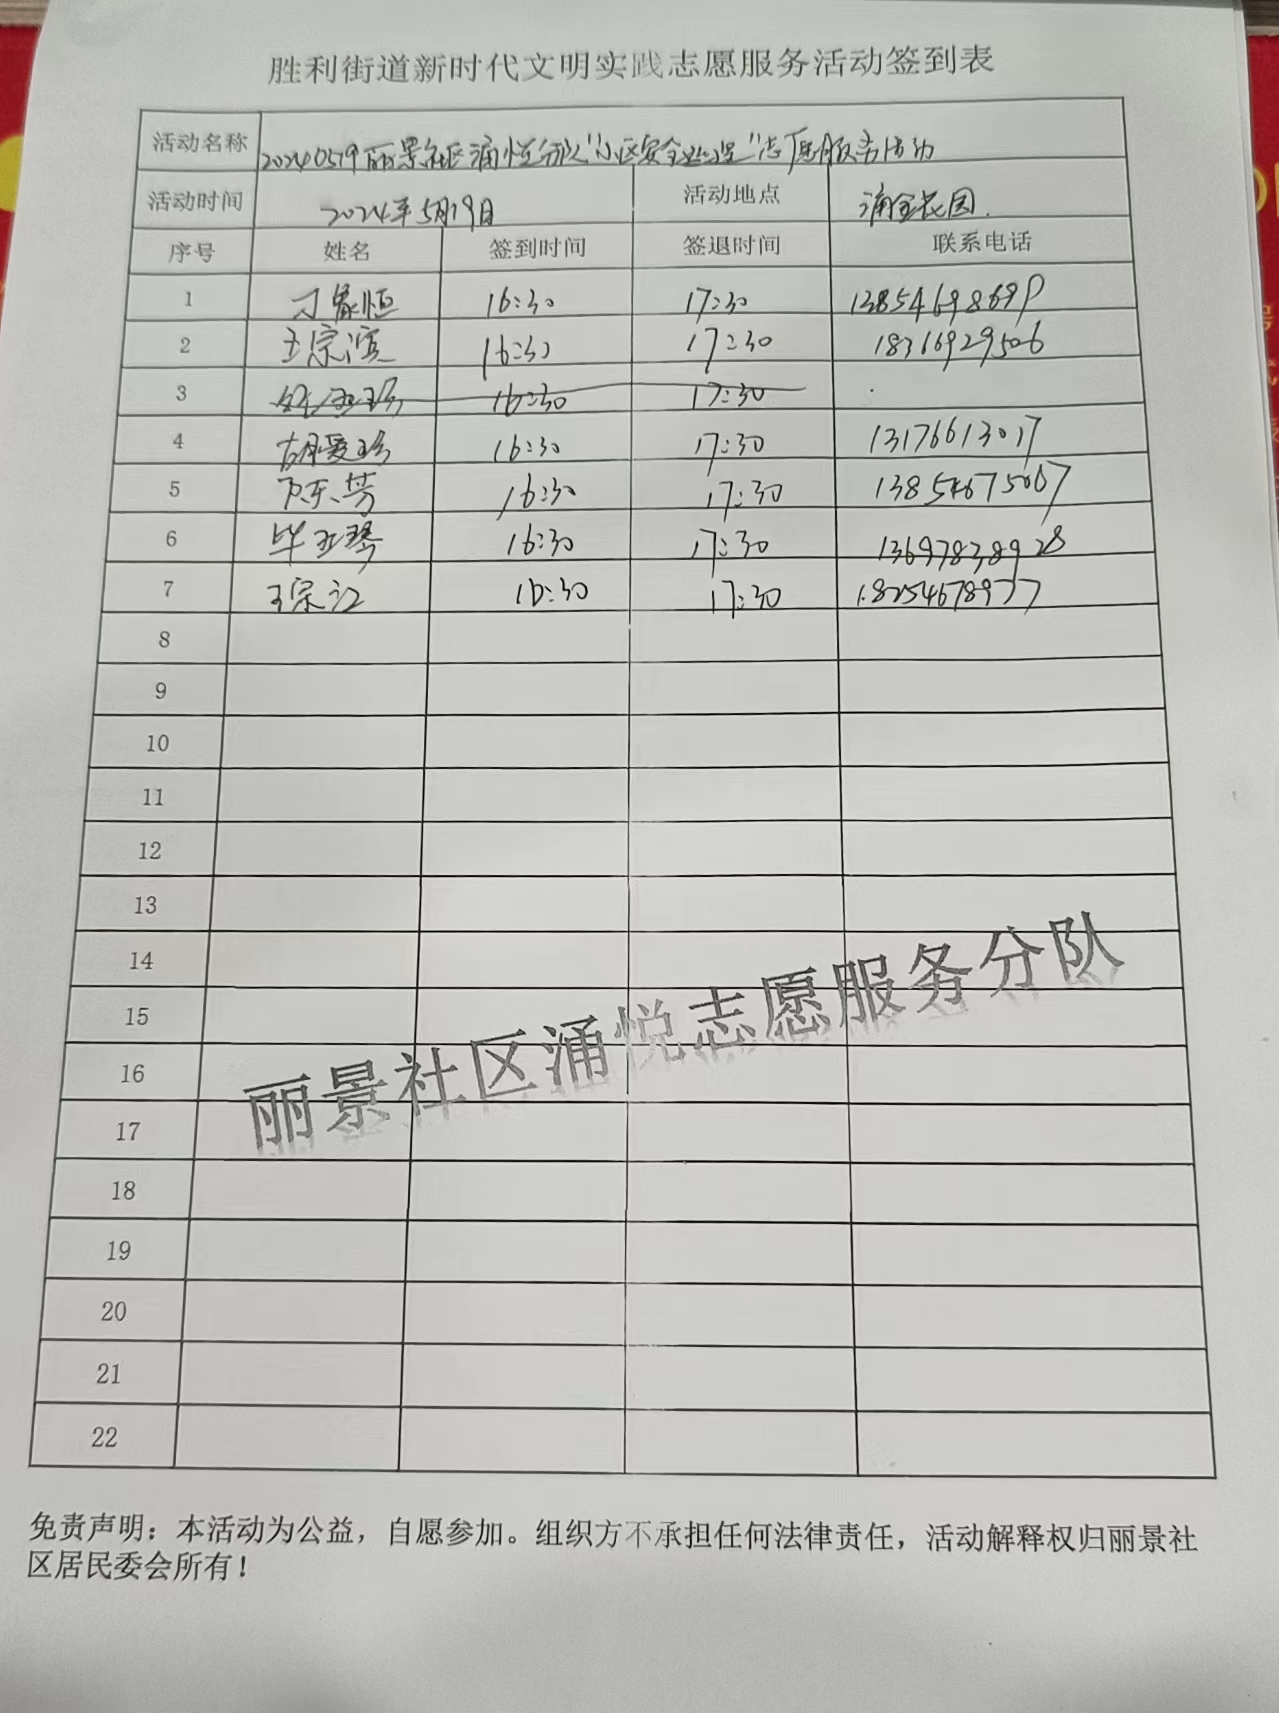 胜利街道新时代文明实践志愿服务活动签到表
活动名称 20240519丽景社区涌悦分队"小区安全巡逻"志愿服务活动
活动时间 2024年5月19日 活动地点 涌金花园.
序号 姓名 签到时间 签退时间 联系电话
1 刁象恒 16:30 17:30 13854698699
2 王宗滨 16:30 17:30 18316929506
3 16:30 17:30
4 胡爱珍 16:30 17:30 13176613017
5 陈芳 16:30 17:30 13854675067
6 毕亚琴 16:30 17:30 13697838928
7 王宗江 16:30 17:30 18254678977
8
9
10
11
12
13
14
15
16
17
18
19
20
21
22
丽景社区涌悦志愿服务分队
免责声明：本活动为公益，自愿参加。组织方不承担任何法律责任，活动解释权归丽景社
区居民委会所有！